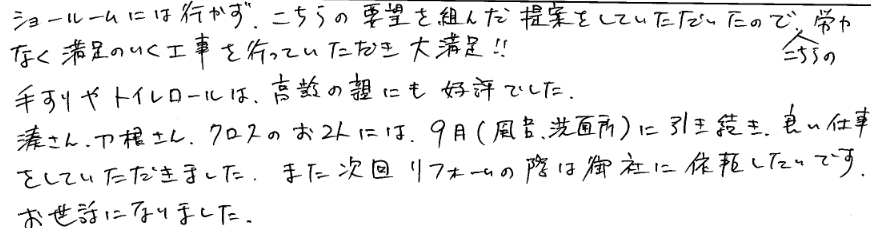 ショールームには行かず、こちらの要望を組んだ提案をしていただいたので、こちらの労力
なく満足のいく工事を行っていただき大満足!!
手すりやトイレロールは、高齢の親にも好評でした。
湊さん、刀根さん、クロスのお2人には、9月(風呂、洗面所)に引き続き、良い仕事
をしていただきました。また次回リフォームの際は御社に依頼したいです。
お世話になりました。